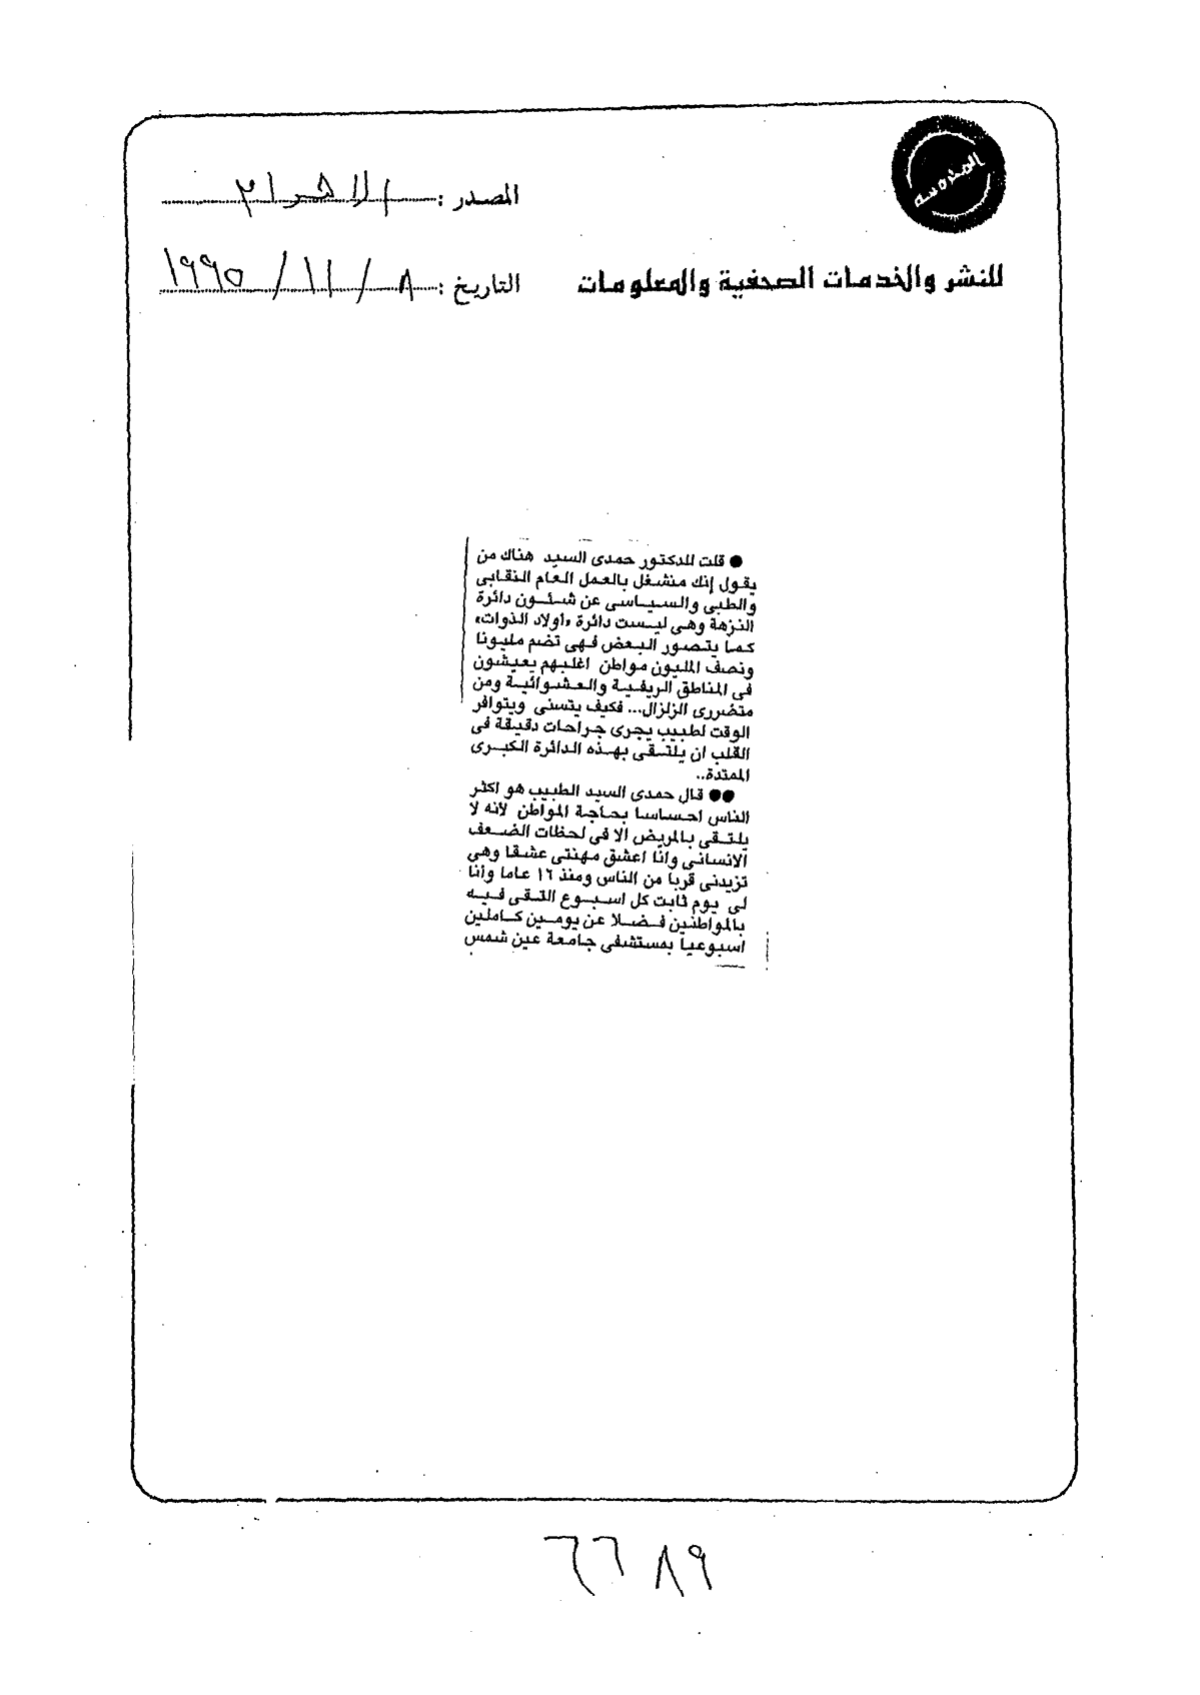 المحروسة
المصدر : الاهرام
للنشر والخدمات الصحفية والمعلومات
التاريخ : ٨ / ١١ / ١٩٩٥
● قلت للدكتور حمدى السيد هناك من
يقول إنك منشغل بالعمل العام النقابى
والطبى والسياسى عن شئون دائرة
النزهة وهى ليست دائرة «أولاد الذوات»
كما يتصور البعض فهى تضم مليونا
ونصف المليون مواطن اغلبهم يعيشون
فى المناطق الريفية والعشوائية ومن
متضررى الزلزال... فكيف يتسنى ويتوافر
الوقت لطبيب يجرى جراحات دقيقة فى
القلب ان يلتقى بهذه الدائرة الكبرى
الممتدة..
●● قال حمدى السيد الطبيب هو اكثر
الناس احساسا بحاجة المواطن لانه لا
يلتقى بالمريض الا فى لحظات الضعف
الانسانى وانا اعشق مهنتى عشقا وهى
تزيدنى قربا من الناس ومنذ ١٦ عاما وانا
لى يوم ثابت كل اسبوع التقى فيه
بالمواطنين فضلا عن يومين كاملين
اسبوعيا بمستشفى جامعة عين شمس
٦٦٨٩